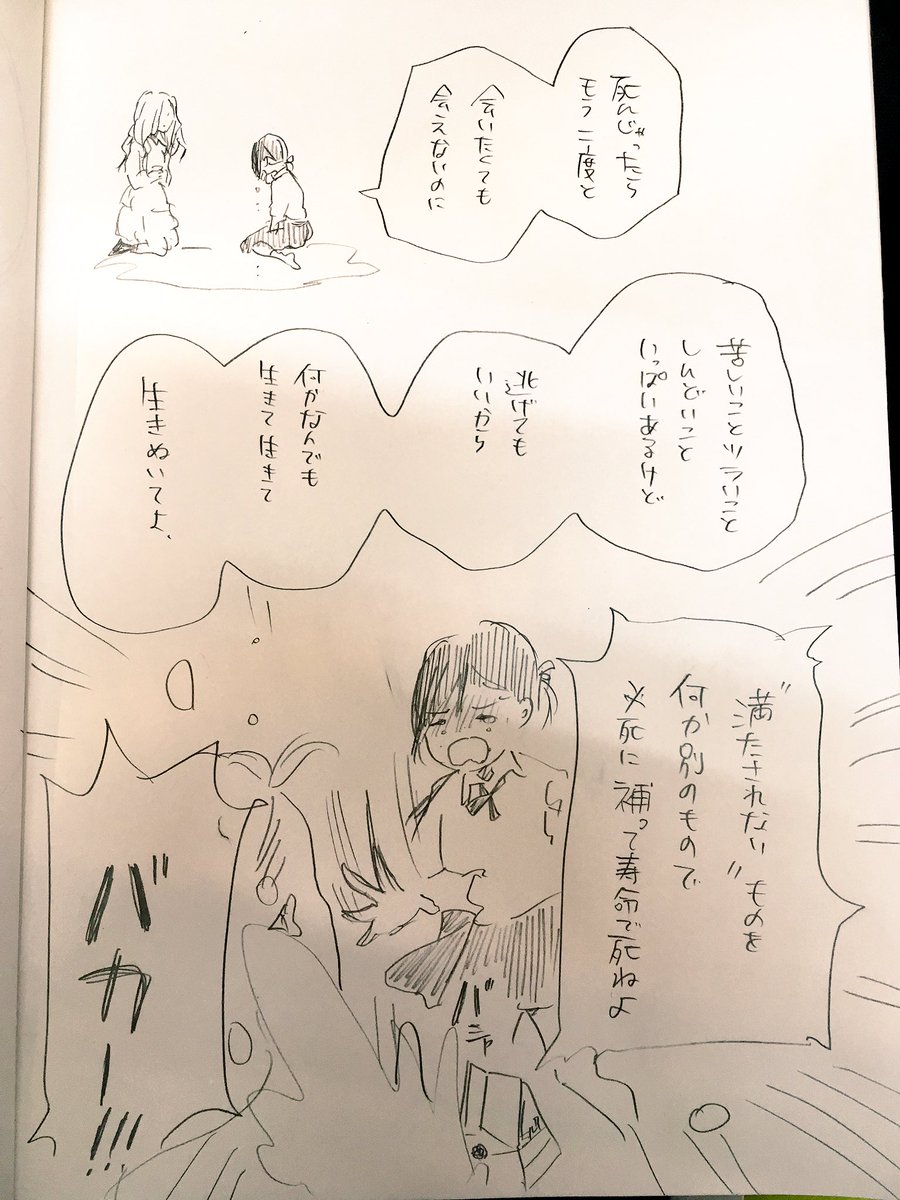 死んじゃったら
もう二度と
会いたくても
会えないのに
苦しいことツラいこと
しんどいこと
いっぱいあるけど
逃げても
いいから
何がなんでも
生きて生きて
生きぬいてよ、
"満たされない"ものを
何か別のもので
必死に補って寿命で死ねよ
バシャ
バカー!!!